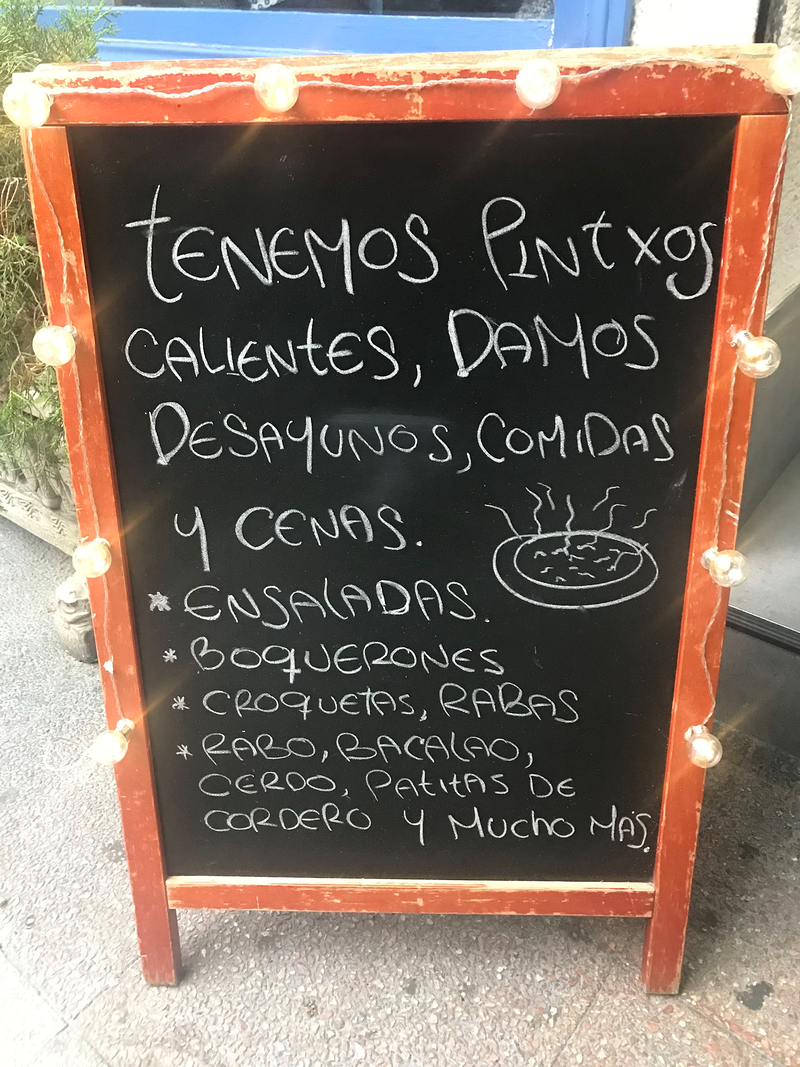 tENEMOS PINtXOS
CALIENtES, DAMOS
DESAYUNOS, COMIDAS
Y CENAS.
* ENSALADAS.
* BOQUERONES
* CROQUETAS, RABAS
* RABO, BACALAO,
CERDO, PATITAS DE
CORDERO Y MUCHO MÁS.